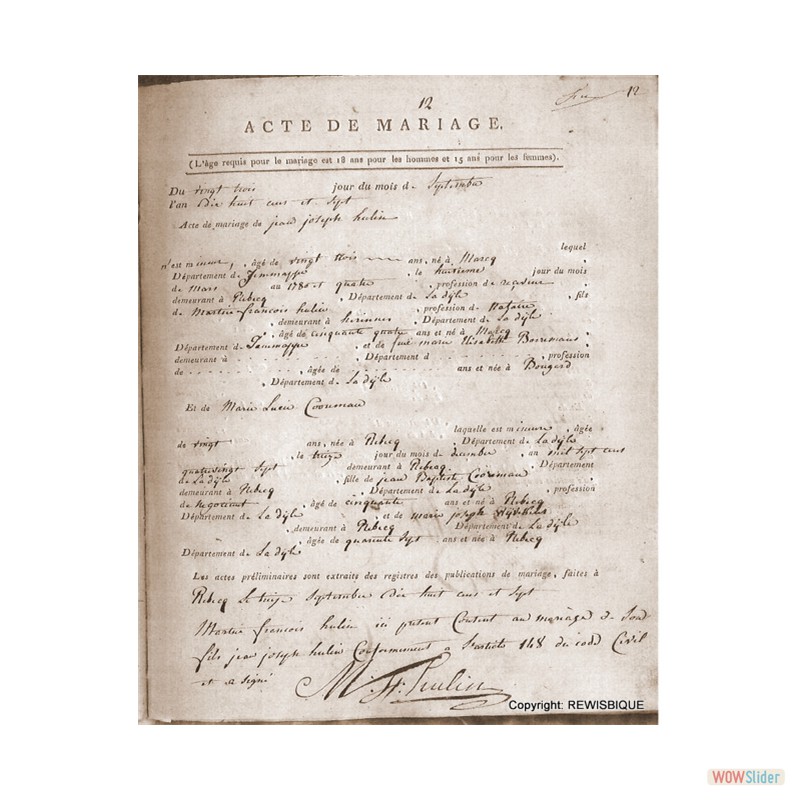 12
12
ACTE DE MARIAGE.
(L'âge requis pour le mariage est 18 ans pour les hommes et 15 ans pour les femmes).
Du vingt trois jour du mois de Septembre
l'an Dix huit cens et Sept
Acte de mariage de jean joseph hulin
lequel
n'est mineur, âgé de vingt trois ans, né à Marcq
Département de Jemmappe, le huitieme jour du mois
de Mars au 1780 et quatre, profession de
demeurant à Rebecq, Département de La dÿle, fils
de Martin francois hulin, profession de Notaire
, demeurant à herinnes, Département de La dÿle
, âgé de cinquante quatre ans et né à Marcq
Département de Jemmappe et de feue marie Elisabeth Borremans
demeurant à . Département d , profession
de , âgée de ans et née à Bougard
, Département de La dÿle
Et de Marie Lucie Cooreman
laquelle est mineure, âgée
de vingt ans, née à Rebecq, Département de La dÿle
, le treize jour du mois de decembre an mil sept cens
quatrevingt Sept demeurant à Rebecq. Département
de La dÿle, fille de jean Baptiste Cooreman
demeurant à Rebecq, Département de La dÿle, profession
de Negociant, âgé de cinquante ans et né à Rebecq
Département de La dÿle, et de marie joseph
, demeurant à Rebecq Département de La dÿle
, âgée de quarante Sept ans et née à Rebecq
Département de La dÿle
Les actes préliminaires sont extraits des registres des publications de mariage, faites à
Rebecq Le treize Septembre Dix huit cens et Sept
Martin francois hulin ici present Consent au mariage de Son
fils jean joseph hulin Conformement a L'article 148 du code Civil
et a signé
M. F. hulin
Copyright: REWISBIQUE
WOWSlider